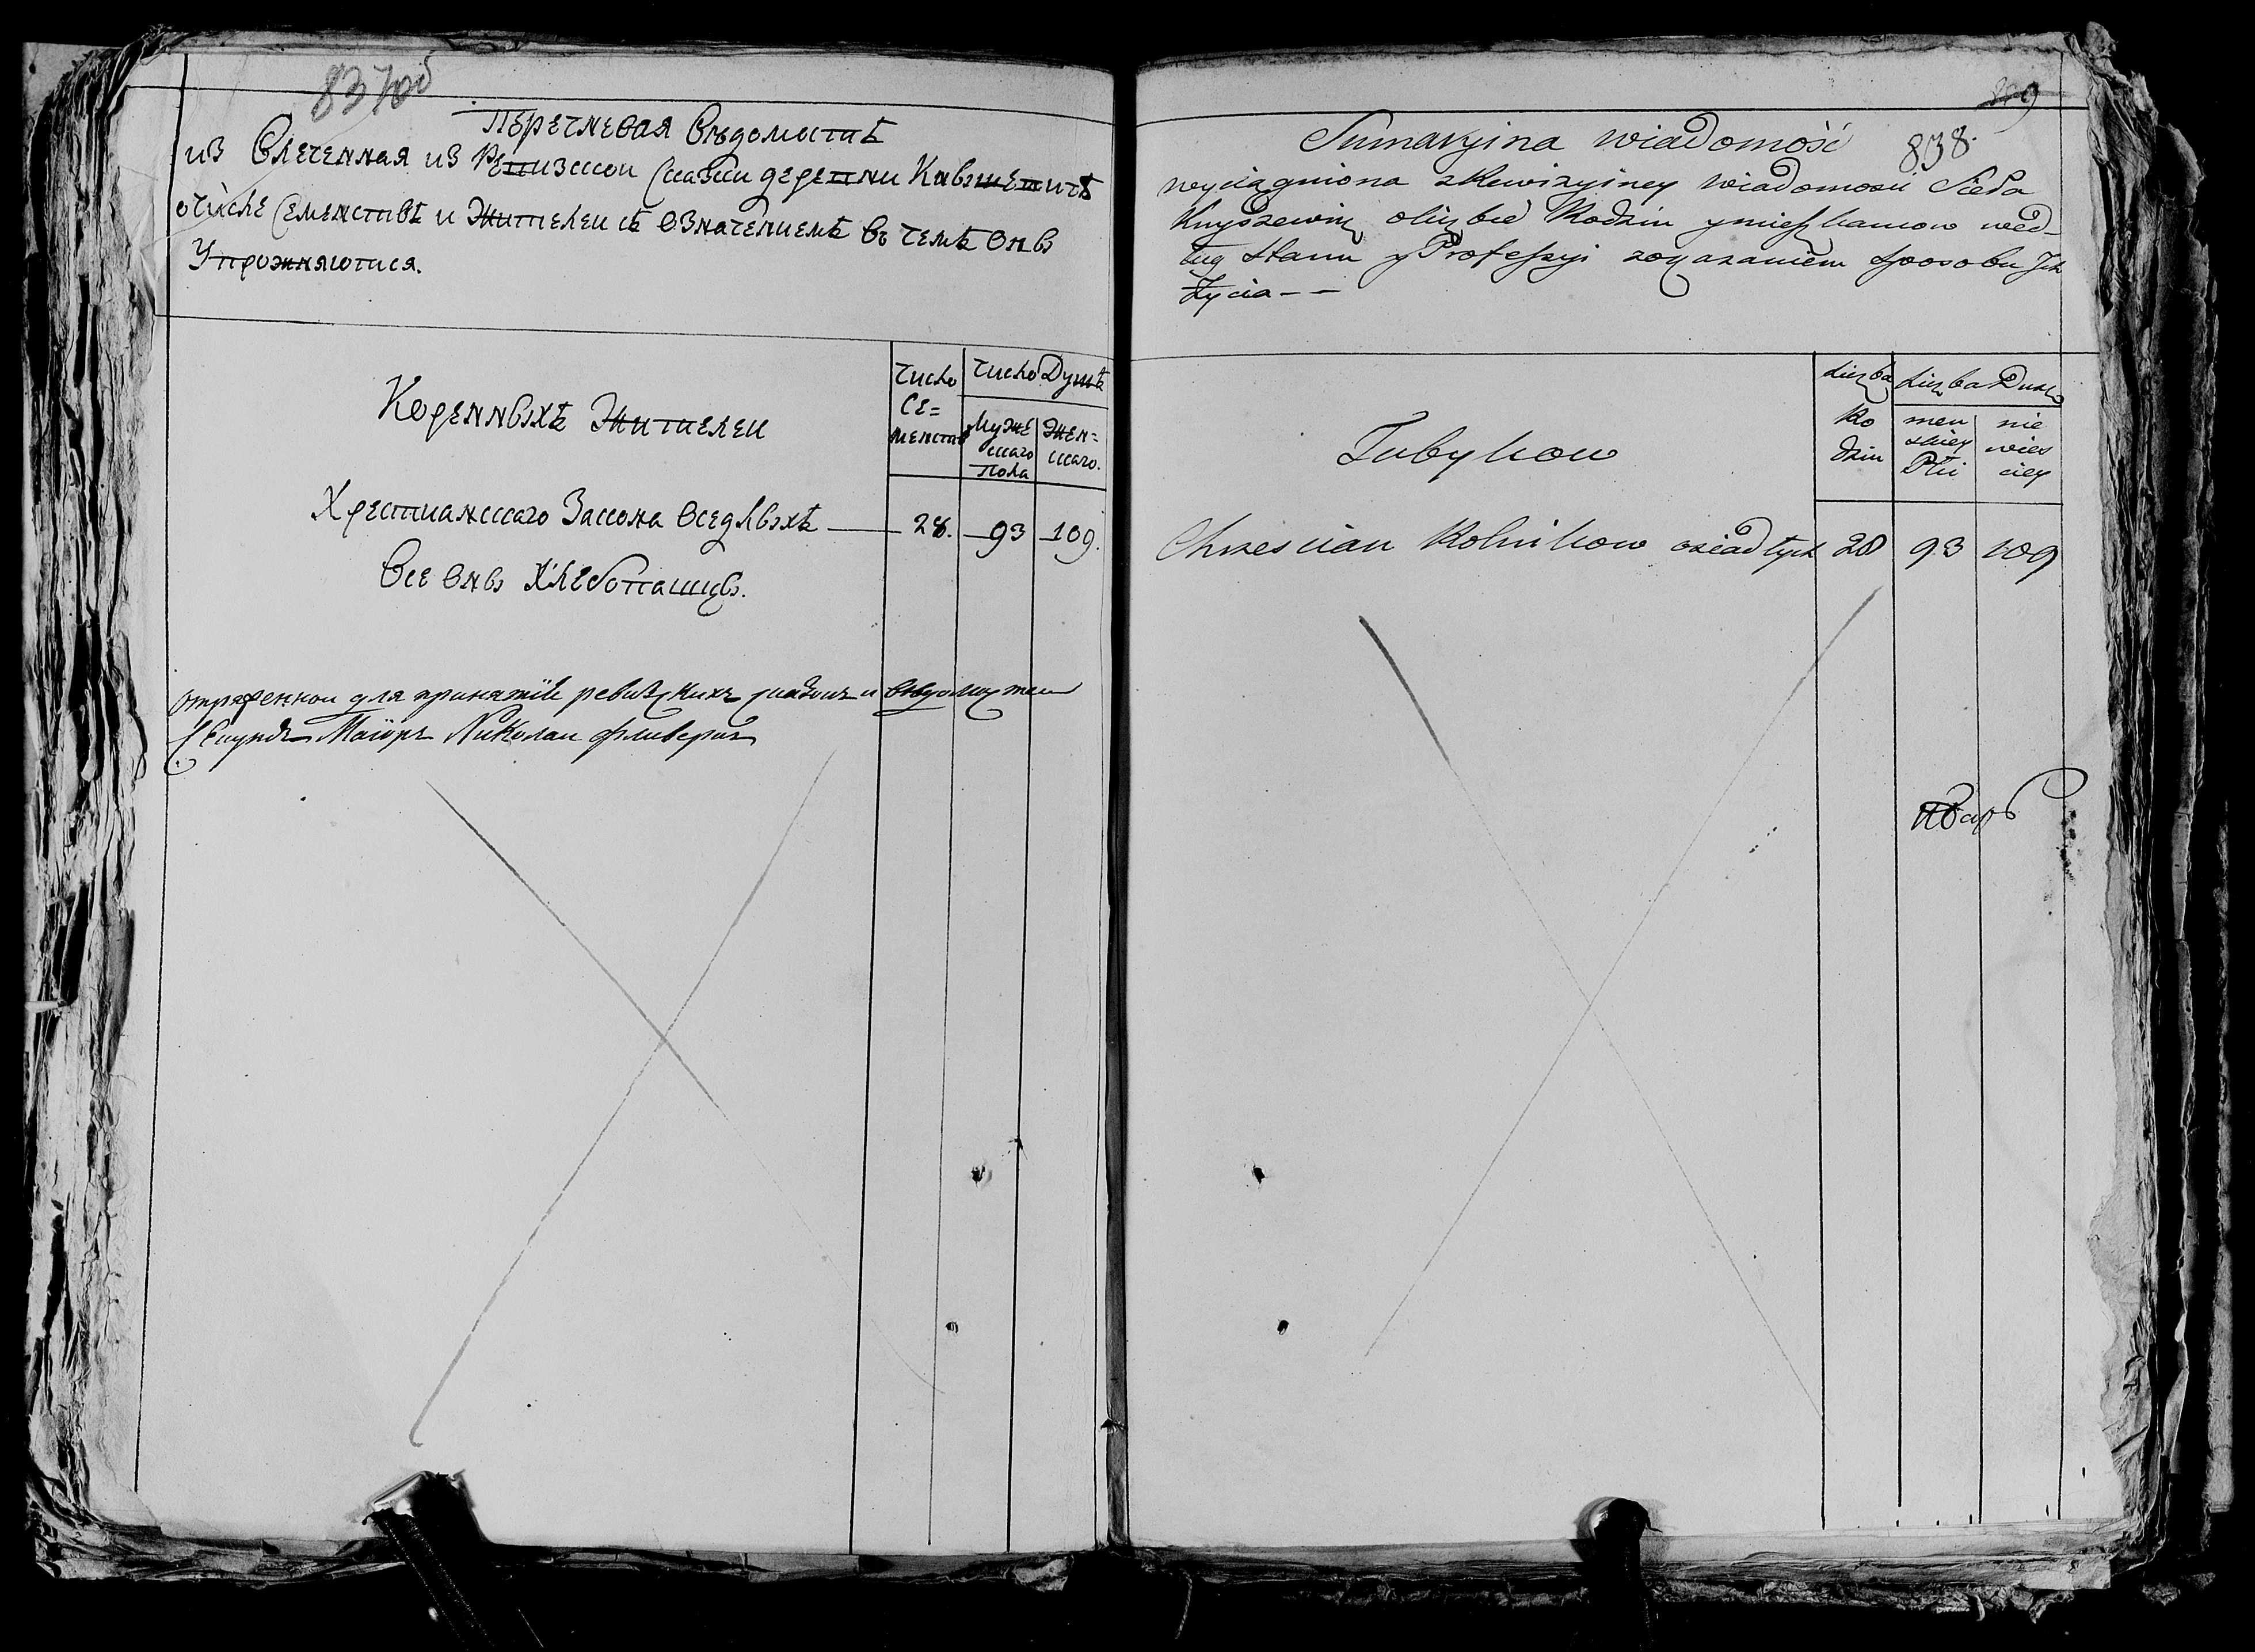 837об
Перечневая Вѣдомость
из Влеченная из Ревизской Сказки деревни Кнышевичъ
очислѣ Семействъ и Жителеи съ Означениемъ Въ чемъ Они
Упрожняются.
Коренныхъ Жителеи
Число Се=мейств
Число Душъ
Мужескаго Пола
Жен=скаго.
Хрестианскаго Закона Оседлыхъ — 28. 93 109.
Все Оны Хлебопашцы.
отряженнои для принятїя ревизскихъ сказокъ и вѣдомостеи
Секундъ Маїоръ Николаи
9
838.
Sumaryina wiadomość
wyciągniona zRewizyiney wiadomosci Sioła
Knyszewicz oliczbie Rodzin ymieszkancow wed-
ług stanu y Professyi zokazaniem sposobu Ich
życia - -
Tubylcow
Liczba Rodzin
Liczba Dusz
men skiey Płci
nie wies ciey
Chrzescian Rolnikow osiadłych 28 93 109